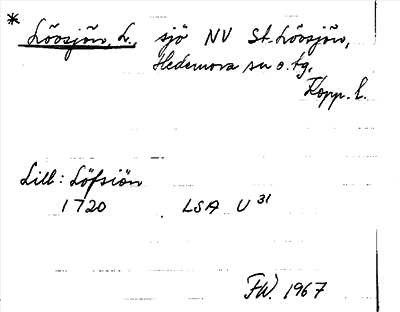 * Lövsjön, L., sjö NV St. Lövsjön,
Hedemora sn o. tg,
Kopp. l.
Lill: Löfsiön
1720 LSA U 31
FW. 1967